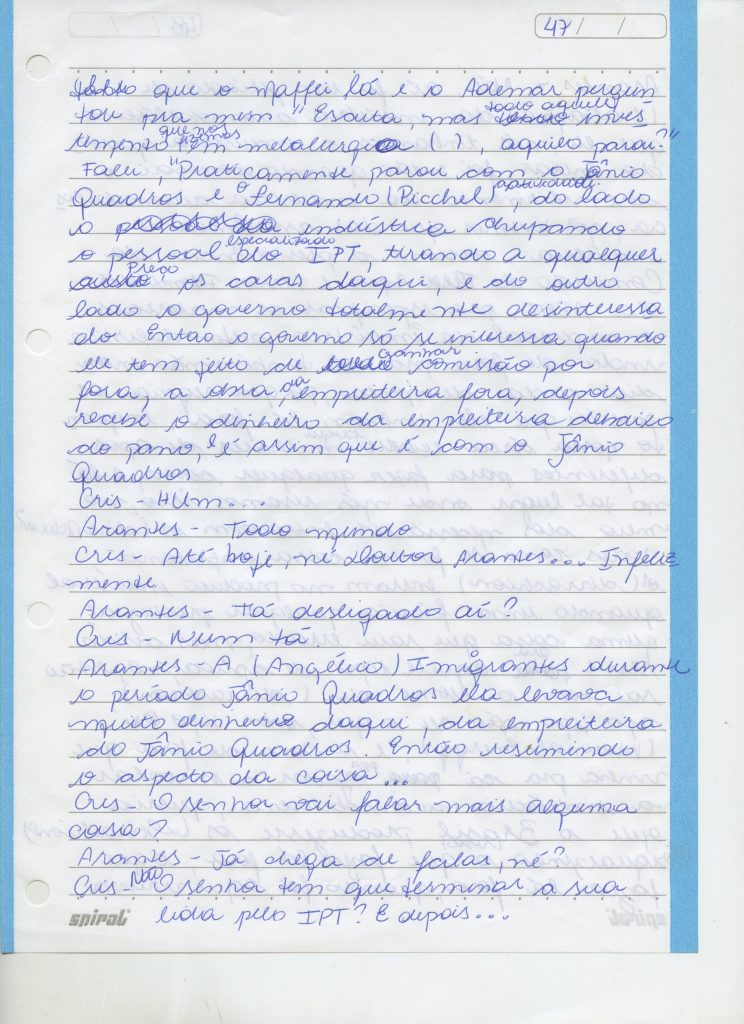 47 / /
que o Maffei lá e o Ademar pergun
tou pra mim "Escuta, mas todo aquele inves
timento que nós fizemos em metalurgica ( ), aquilo parou?"
Falei, "Praticamente parou com o Jânio
Quadros e o Fernando (Picchel) aprofundado, do lado
o indústria chupando
o pessoal especializado do IPT, tirando a qualquer
preço, os caras daqui, e do outro
lado o governo totalmente desinteressa
do. Então o governo só se interessa quando
ele tem jeito de ganhar comissão por
fora, a obra, da empreiteira fora, depois
recebe o dinheiro da empreiteira debaixo
do pano, e é assim que é com o Jânio
Quadros
Cris - Hum...
Arantes - Todo mundo
Cris - Até hoje, né Doutor Arantes... Infeliz
mente
Arantes - Tá desligado aí?
Cris - Num tá.
Arantes - A (Angélico) Imigrantes durante
o período Jânio Quadros ela levava
muito dinheiro daqui, da empreiteira
do Jânio Quadros. Então resumindo
o aspecto da coisa...
Cris - O senhor vai falar mais alguma
coisa?
Arantes - Já chega de falar, né?
Cris - Não O senhor tem que terminar a sua
lida pelo IPT? E depois...
spiral